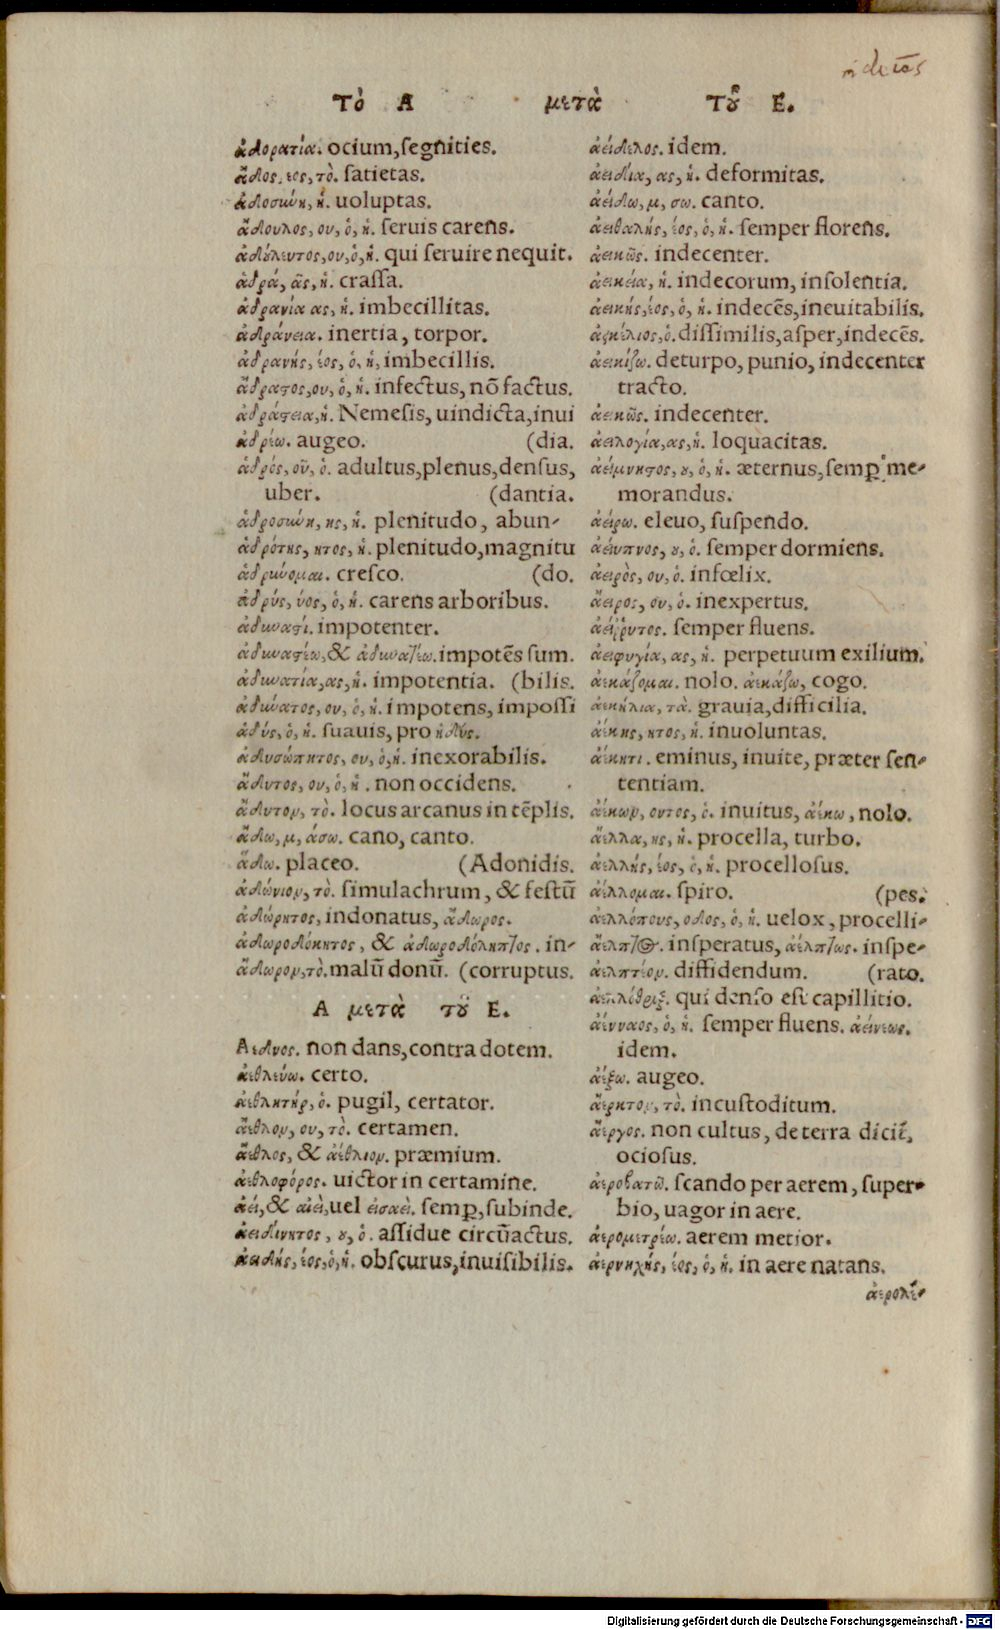 Τὸ Α μετὰ τοῦ Ε.
ἀδορατία. ocium, ſegnities.
ἄδος, εος, τὸ. ſatietas.
ἀδοσύνη, ἡ. uoluptas.
ἄδουλος, ου, ὁ, ἡ. ſeruis carens.
ἀδούλευτος, ου, ὁ, ἡ. qui ſeruire nequit.
ἁδρά, ᾶς, ἡ. craſſa.
ἀδρανία ας, ἡ. imbecillitas.
ἀδράνεια. inertia, torpor.
ἀδρανής, έος, ὁ, ἡ, imbecillis.
ἄδραστος, ου, ὁ, ἡ. infectus, nō factus.
ἀδράστεια, ἡ. Nemeſis, uindicta, inui
ἁδρέω. augeo. (dia.
ἁδρός, οῦ, ὁ. adultus, plenus, denſus,
uber. (dantia.
ἁδροσύνη, ης, ἡ. plenitudo, abun-
ἁδρότης, ητος, ἡ. plenitudo, magnitu
ἁδρύνομαι. creſco. (do.
ἄδρυς, υος, ὁ, ἡ. carens arboribus.
ἀδυναστί. impotenter.
ἀδυναστέω, & ἀδυνατέω. impotēs ſum.
ἀδυνατία, ας, ἡ. impotentia. (bilis.
ἀδύνατος, ου, ὁ, ἡ. impotens, impoſſi
ἀδύς, ὁ, ἡ. ſuauis, pro ἡδύς.
ἀδυσώπητος, ου, ὁ, ἡ. inexorabilis.
ἄδυτος, ου, ὁ, ἡ. non occidens.
ἄδυτον, τὸ. locus arcanus in tēplis.
ἄδω, μ, άσω. cano, canto.
ἄδω. placeo. (Adonidis.
ἀδώνιον, τὸ. ſimulachrum, & feſtū
ἀδώρητος, indonatus, ἄδωρος.
ἀδωροδόκητος, & ἀδωροδόληπτος. in-
ἄδωρον, τὸ. malū donū. (corruptus.
Α μετὰ τοῦ Ε.
Αεδνος. non dans, contra dotem.
ἀεθλεύω. certo.
ἀεθλητήρ, ὁ. pugil, certator.
ἄεθλον, ου, τὸ. certamen.
ἄεθλος, & ἀέθλιον. præmium.
ἀεθλοφόρος. uictor in certamine.
ἀεί, & αἰεὶ, uel εἰσαεὶ. ſemp, ſubinde.
ἀειδίνητος, ου, ὁ. aſſidue circūactus.
ἀειδής, έος, ὁ, ἡ. obſcurus, inuiſibilis.
ἀείδελος. idem.
ἀειδία, ας, ἡ. deformitas.
ἀείδω, μ, σω. canto.
ἀειθαλής, έος, ὁ, ἡ. ſemper florens.
ἀεικῶς. indecenter.
ἀεικεία, ἡ. indecorum, inſolentia.
ἀεικής, έος, ὁ, ἡ. indecēs, ineuitabilis.
ἀεικέλιος, ὁ. diſſimilis, aſper, indecēs.
ἀεικίζω. deturpo, punio, indecenter
tracto.
ἀεικῶς. indecenter.
ἀειλογία, ας, ἡ. loquacitas.
ἀείμνηστος, ου, ὁ, ἡ. æternus, ſemp me-
morandus.
ἀείρω. eleuo, ſuſpendo.
ἀείυπνος, ου, ὁ. ſemper dormiens.
ἀειρὸς, ου, ὁ. infœlix.
ἄειρος, ου, ὁ. inexpertus.
ἀείῤῥυτος. ſemper fluens.
ἀειφυγία, ας, ἡ. perpetuum exilium.
ἀεκάζομαι. nolo. ἀεκάζω, cogo.
ἀεκήλια, τὰ. grauia, difficilia.
ἀέκης, ητος, ἡ. inuoluntas.
ἀέκητι. eminus, inuite, præter ſen-
tentiam.
ἀέκων, οντος, ὁ. inuitus, ἀέκω, nolo.
ἄελλα, ης, ἡ. procella, turbo.
ἀελλής, έος, ὁ, ἡ. procelloſus.
ἀέλλομαι. ſpiro. (pes.
ἀελλόπους, οδος, ὁ, ἡ. uelox, procelli-
ἄελπτος. inſperatus, ἀέλπτως. inſpe-
ἀελπτέον. diffidendum. (rato.
ἀελλόθριξ. qui denſo eſt capillitio.
ἀένναος, ὁ, ἡ. ſemper fluens. ἀένεως.
idem.
ἀέξω. augeo.
ἄερητον, τὸ. incuſtoditum.
ἄεργος. non cultus, de terra dicit̄,
ocioſus.
ἀεροβατῶ. ſcando per aerem, ſuper-
bio, uagor in aere.
ἀερομετρέω. aerem metior.
ἀερνηχής, έος, ὁ, ἡ. in aere natans.
ἀερολέ-
Digitalisierung gefördert durch die Deutsche Forschungsgemeinschaft - DFG